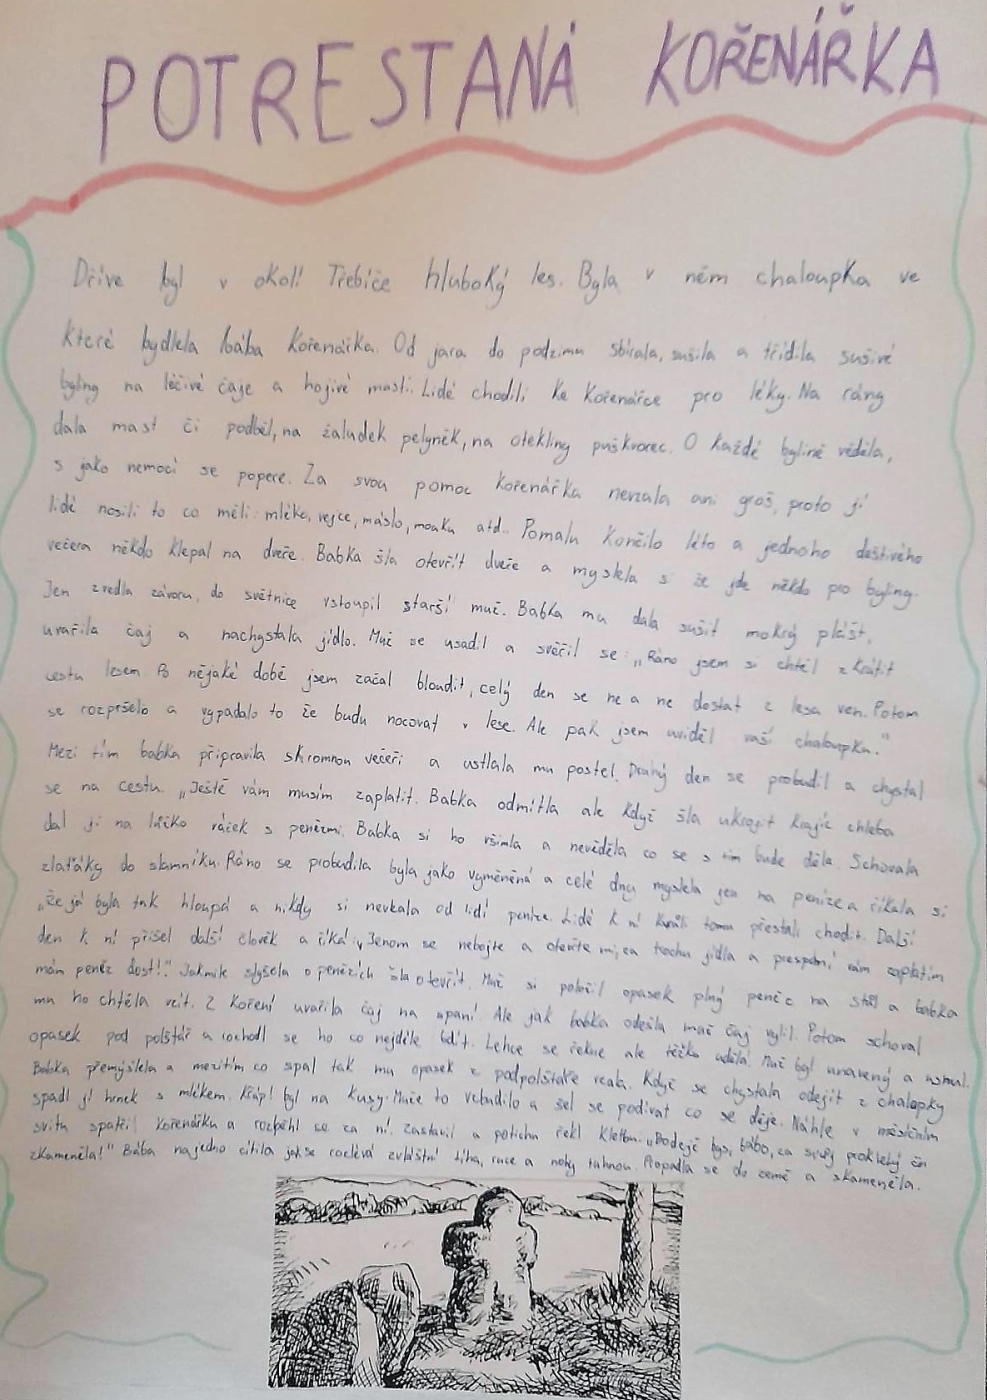 POTRESTANÁ KOŘENÁŘKA
Dříve byl v okolí Třebíče hluboký les. Byla v něm chaloupka ve
které bydlela bába Kořenářka. Od jara do podzimu sbírala, sušila a třídila sušivé
byliny na léčivé čaje a hojivé masti. Lidé chodili ke Kořenářce pro léky. Na rány
dala mast či podběl, na žaludek pelyněk, na otekliny puškvorec. O každé bylině věděla,
s jako nemocí se popere. Za svou pomoc Kořenářka nevzala ani groš, proto jí
lidé nosili to co měli: mléko, vejce, máslo, mouku atd.. Pomalu končilo léto a jednoho deštivého
večera někdo klepal na dveře. Babka šla otevřít dveře a myslela si že jde někdo pro byliny.
Jen zvedla závoru, do světnice vstoupil starší muž. Babka mu dala sušit mokrý plášt,
uvařila čaj a nachystala jídlo. Muž se usadil a svěřil se: „Ráno jsem si chtěl zkrátit
cestu lesem. Po nějaké době jsem začal bloudit, celý den se ne a ne dostat z lesa ven. Potom
se rozpršelo a vypadalo to že budu nocovat v lese. Ale pak jsem uviděl vaší chaloupku."
Mezi tím babka připravila skromnou večeři a ustlala mu postel. Druhý den se probudil a chystal
se na cestu. „Ještě vám musím zaplatit. Babka odmítla ale když šla ukrojit krajíc chleba
dal jí na lůžko váček s penězmi. Babka si ho všimla a nevěděla co se s tím bude děla. Schovala
zlaťáky do slamníku. Ráno se probudila byla jako vyměněná a celé dny myslela jen na peníze a říkala si
„že já byla tak hloupá a nikdy si nevkala od lidí peníze. Lidé k ní kvůli tomu přestali chodit. Další
den k ní přišel další člověk a říká: „Jenom se nebojte a otevřte mi, za trochu jídla a přespání vám zaplatím
mám peněz dost!". Jakmile slyšela o penězích šla otevřít. Muž si položil opasek plný peněz na stůl a babka
mu ho chtěla vzít. Z koření uvařila čaj na spaní. Ale jak babka odešla muž čaj vylil. Potom schoval
opasek pod polštář a rozhodl se ho co nejdéle bdít. Lehce se řekne ale těžko udělá. Muž byl unavený a usnul.
Babka přemýšlela a mezitím co spal tak mu opasek z podpolštáře vzala. Když se chystala odejít z chalopky
spadl jí hrnek s mlékem. Křáp! byl na kusy. Muže to vzbudilo a šel se podívat co se děje. Náhle v měsíčním
svitu spatřil Kořenářku a rozběhl se za ní. Zastavil a potichu řekl kletbu: „Bodejž bys, bábo, za svůj prokletý čin
zkameněla!" Bába najedno cítila jak se rozlévá zvláštní tíha, ruce a nohy tuhnou. Propadla se do země a skameněla.